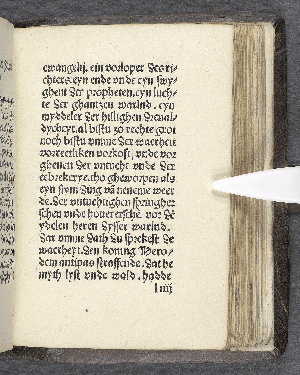 ewangelij. ein vorloper des ri-
chters. eyn ende vnde eyn swy-
ghent der propheten. eyn luch-
te der ghantzen warlnd. eyn
myddeler der hillighen dreual-
dycheyt. al bistu zo rechte grot
noch bistu vmme der warheit
vorretliken vorkoft, vnde vor
ghenen der vnrucht vnde der
ebrekerye. tho gheworpen als
eyn snm ding va neneme weer
de. der vntuchtighen springher
schen vnde houerersche. vor de
ydelen heren dysser warlnd.
dar vmme dath du sprekest de
warheyt. den koning Hero-
dem antipas straffende. dat he
myth lyst vnde wald. hadde
l iiij